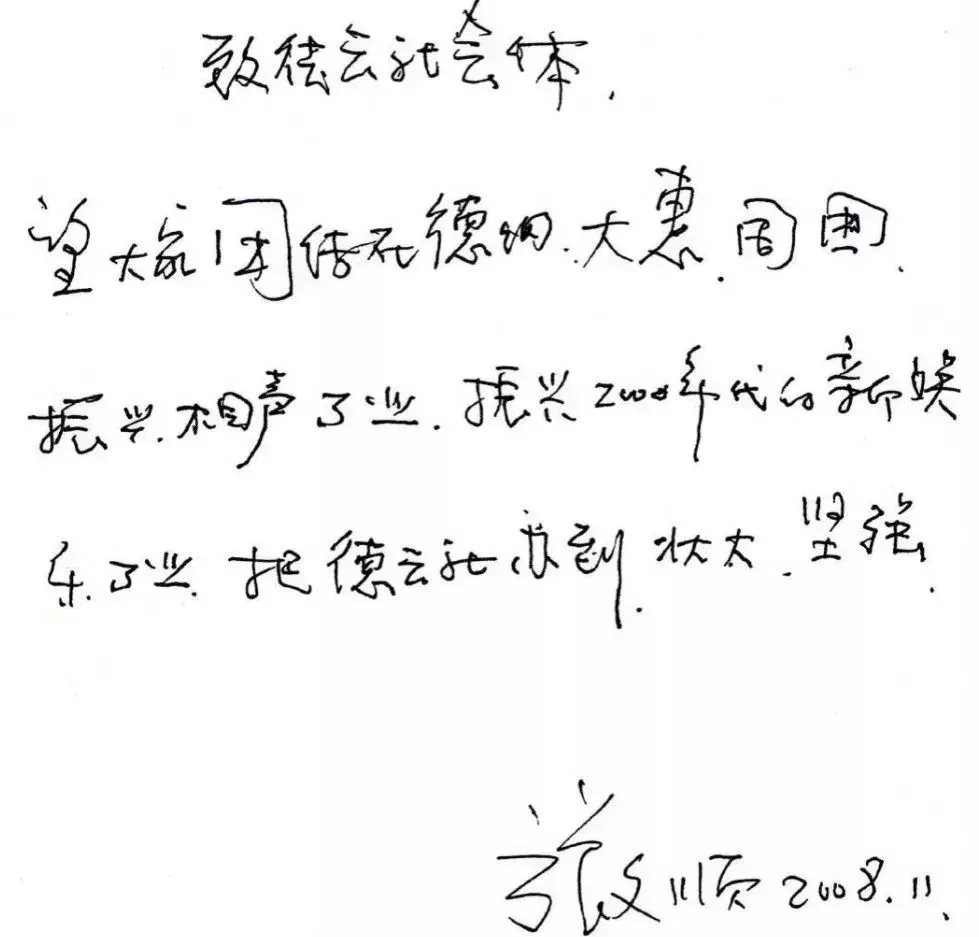 致德云社全体.
望大家团结在德纲.大惠.周围.
振兴.相声事业.振兴2000年代的新娱
乐.事业.把德云社办到.壮大.坚强.
张文顺2008.11.